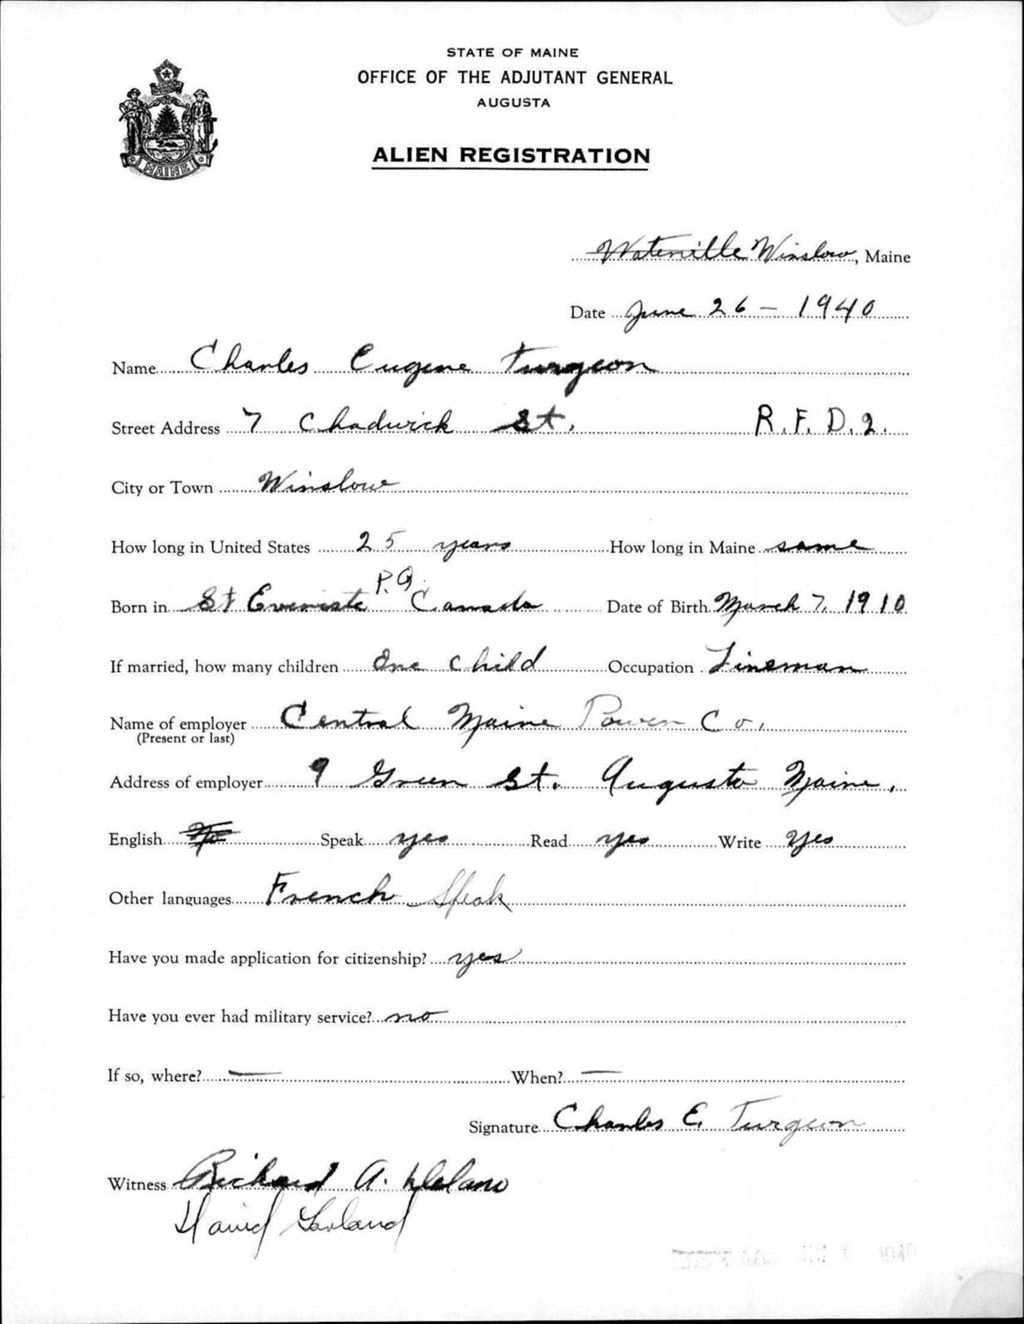 STATE OF MAINE
OFFICE OF THE ADJUTANT GENERAL
AUGUSTA
ALIEN REGISTRATION
MAINE
Waterville Winslow, Maine
Date June 26 - 1940
Name Charles Eugene Turgeon
Street Address 7 Chadwick St. R.F.D.2.
City or Town Winslow
How long in United States 25 years How long in Maine same
Born in St Evariste P.Q. Canada Date of Birth March 7, 1910
If married, how many children One child Occupation Lineman
Name of employer Central Maine Power Co.
(Present or last)
Address of employer 9 Green St. Augusta Maine.
English No Speak yes Read yes Write yes
Other languages French Speak
Have you made application for citizenship? yes
Have you ever had military service? no
If so, where? — When? —
Signature Charles E. Turgeon
Witness Richard A. Delano
David Garland